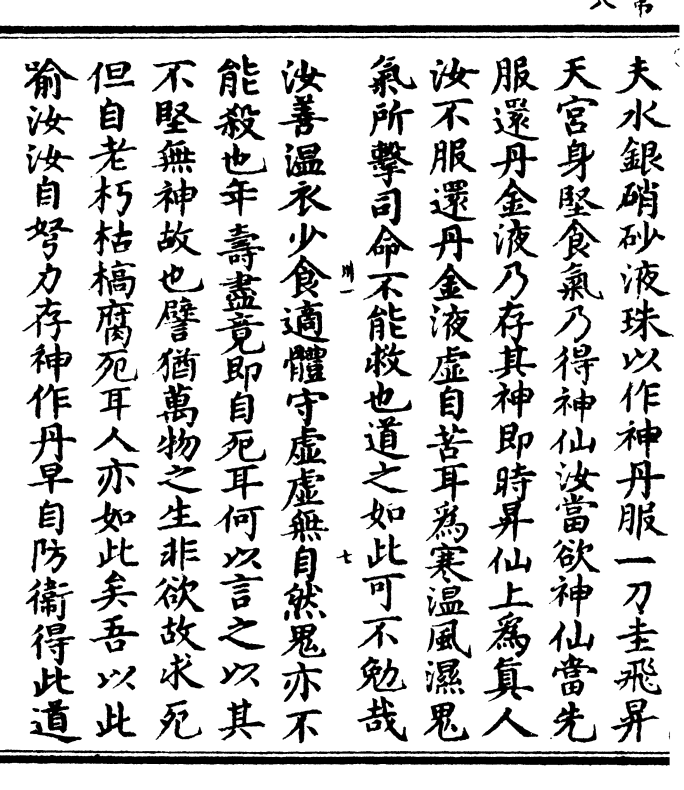 夫水銀硝砂液珠以作神丹服一刀圭飛昇
天宮身堅食氣乃得神仙汝當欲神仙當先
服還丹金液乃存其神即時昇仙上為真人
汝不服還丹金液虛自苦耳為寒溫風濕鬼
氣所擊司命不能救也道之如此可不勉哉
汝善溫衣少食適體守虛虛無自然鬼亦不
能殺也年壽盡竟即自死耳何以言之以其
不堅無神故也譬猶萬物之生非欲故求死
但自老朽枯槁腐死耳人亦如此矣吾以此
喻汝汝自努力存神作丹早自防衞得此道
七